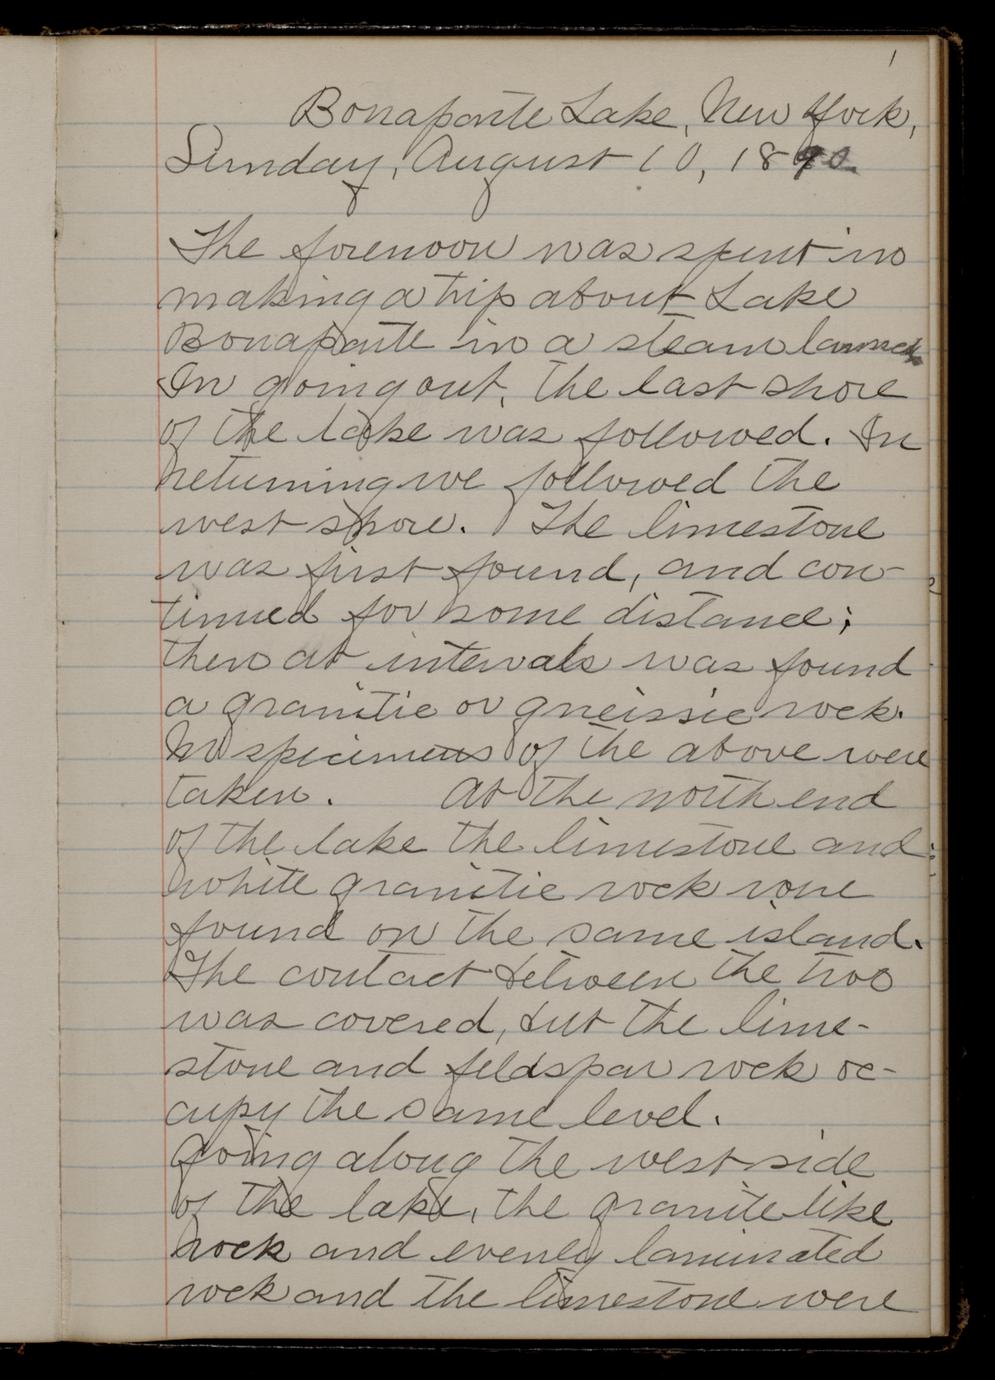 1
Bonaparte Lake, New York,
Sunday, August 10, 1890.
The forenoon was spent in
making a trip about Lake
Bonaparte in a steam launch.
In going out, the east shore
of the lake was followed. In
returning we followed the
west shore. The limestone
was first found, and con-
tinued for some distance;
then at intervals was found
a granitic or gneissic rock.
No specimens of the above were
taken. At the north end
of the lake the limestone and
white granitic rock were
found on the same island.
The contact between the two
was covered, but the lime-
stone and feldspar rock oc-
cupy the same level.
Going along the west side
of the lake, the granite like
rock and evenly laminated
rock and the limestone were